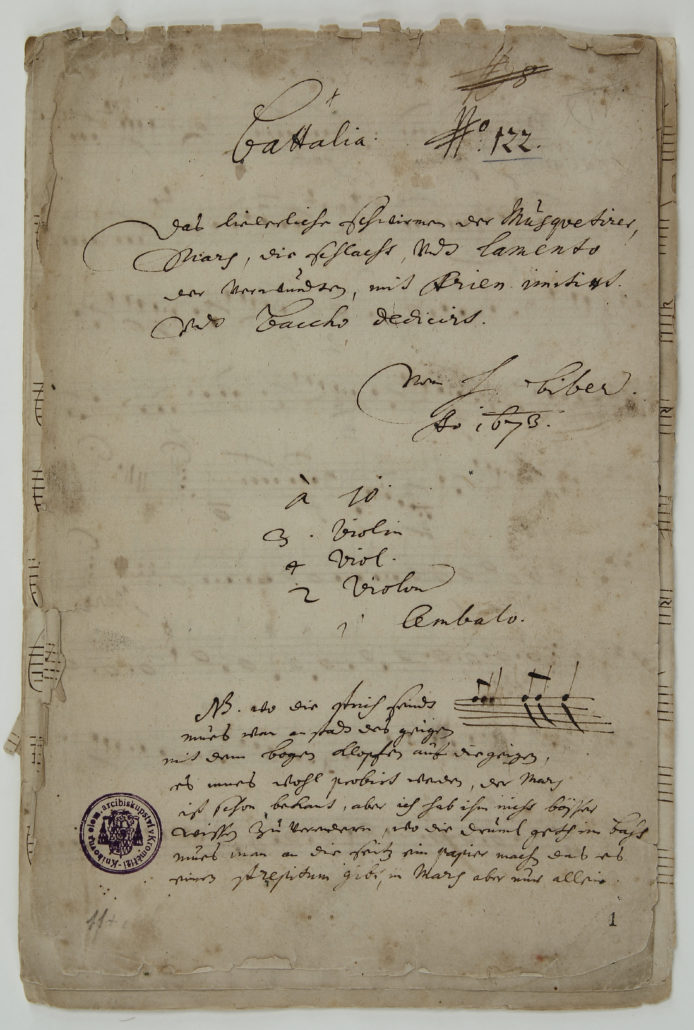 № 8
Battalia. № 122.
Das liederliche schwirmen der Musquetirer,
Mars, die schlacht, Vndt lamento
der Verwundten, mit Arien imitirt.
Vnd Baccho dedicirt.
Von H biber.
Ao 1673.
à 10
3. Violin
4 Viol.
2 Violon
1 Cembalo.
NB. wo die strich seindt
mues man anstad des geigen
mit dem bogen klopfen auf die geigen,
es mues wohl probirt werden, der Mars
ist schon bekant, aber ich hab ihn nicht bösser
wissen zu verendern, wo die druml geth im baß
mues man an die seitn ein papier machn das es
einen strepitum gibt, in Mars aber nur allein.
Knihovna olom. arcibiskupství v Kroměříži
1